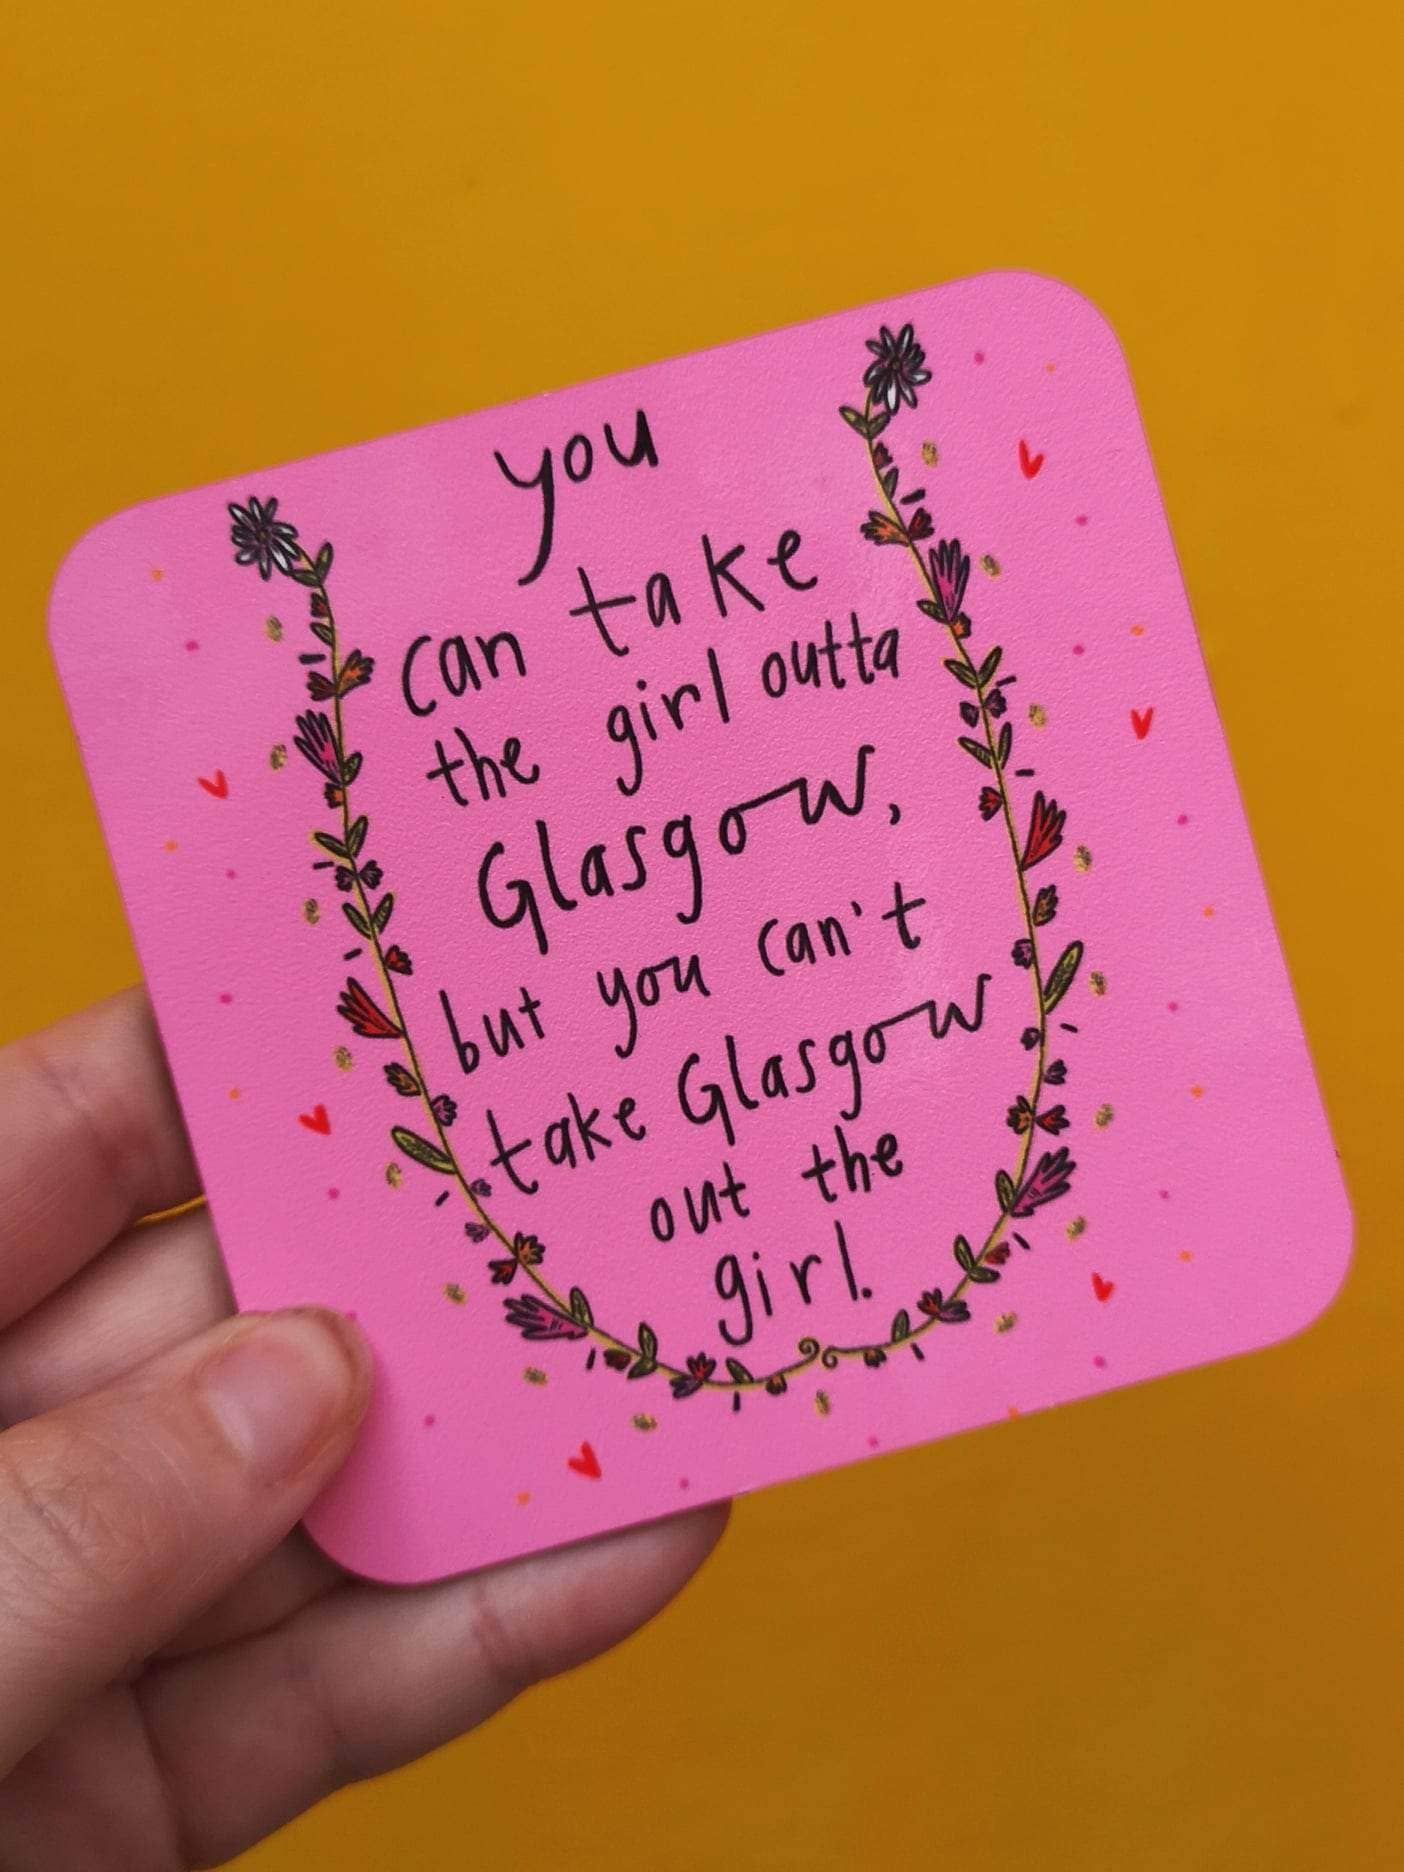 you
can take
the girl outta
Glasgow,
but you can't
take Glasgow
out the
girl.